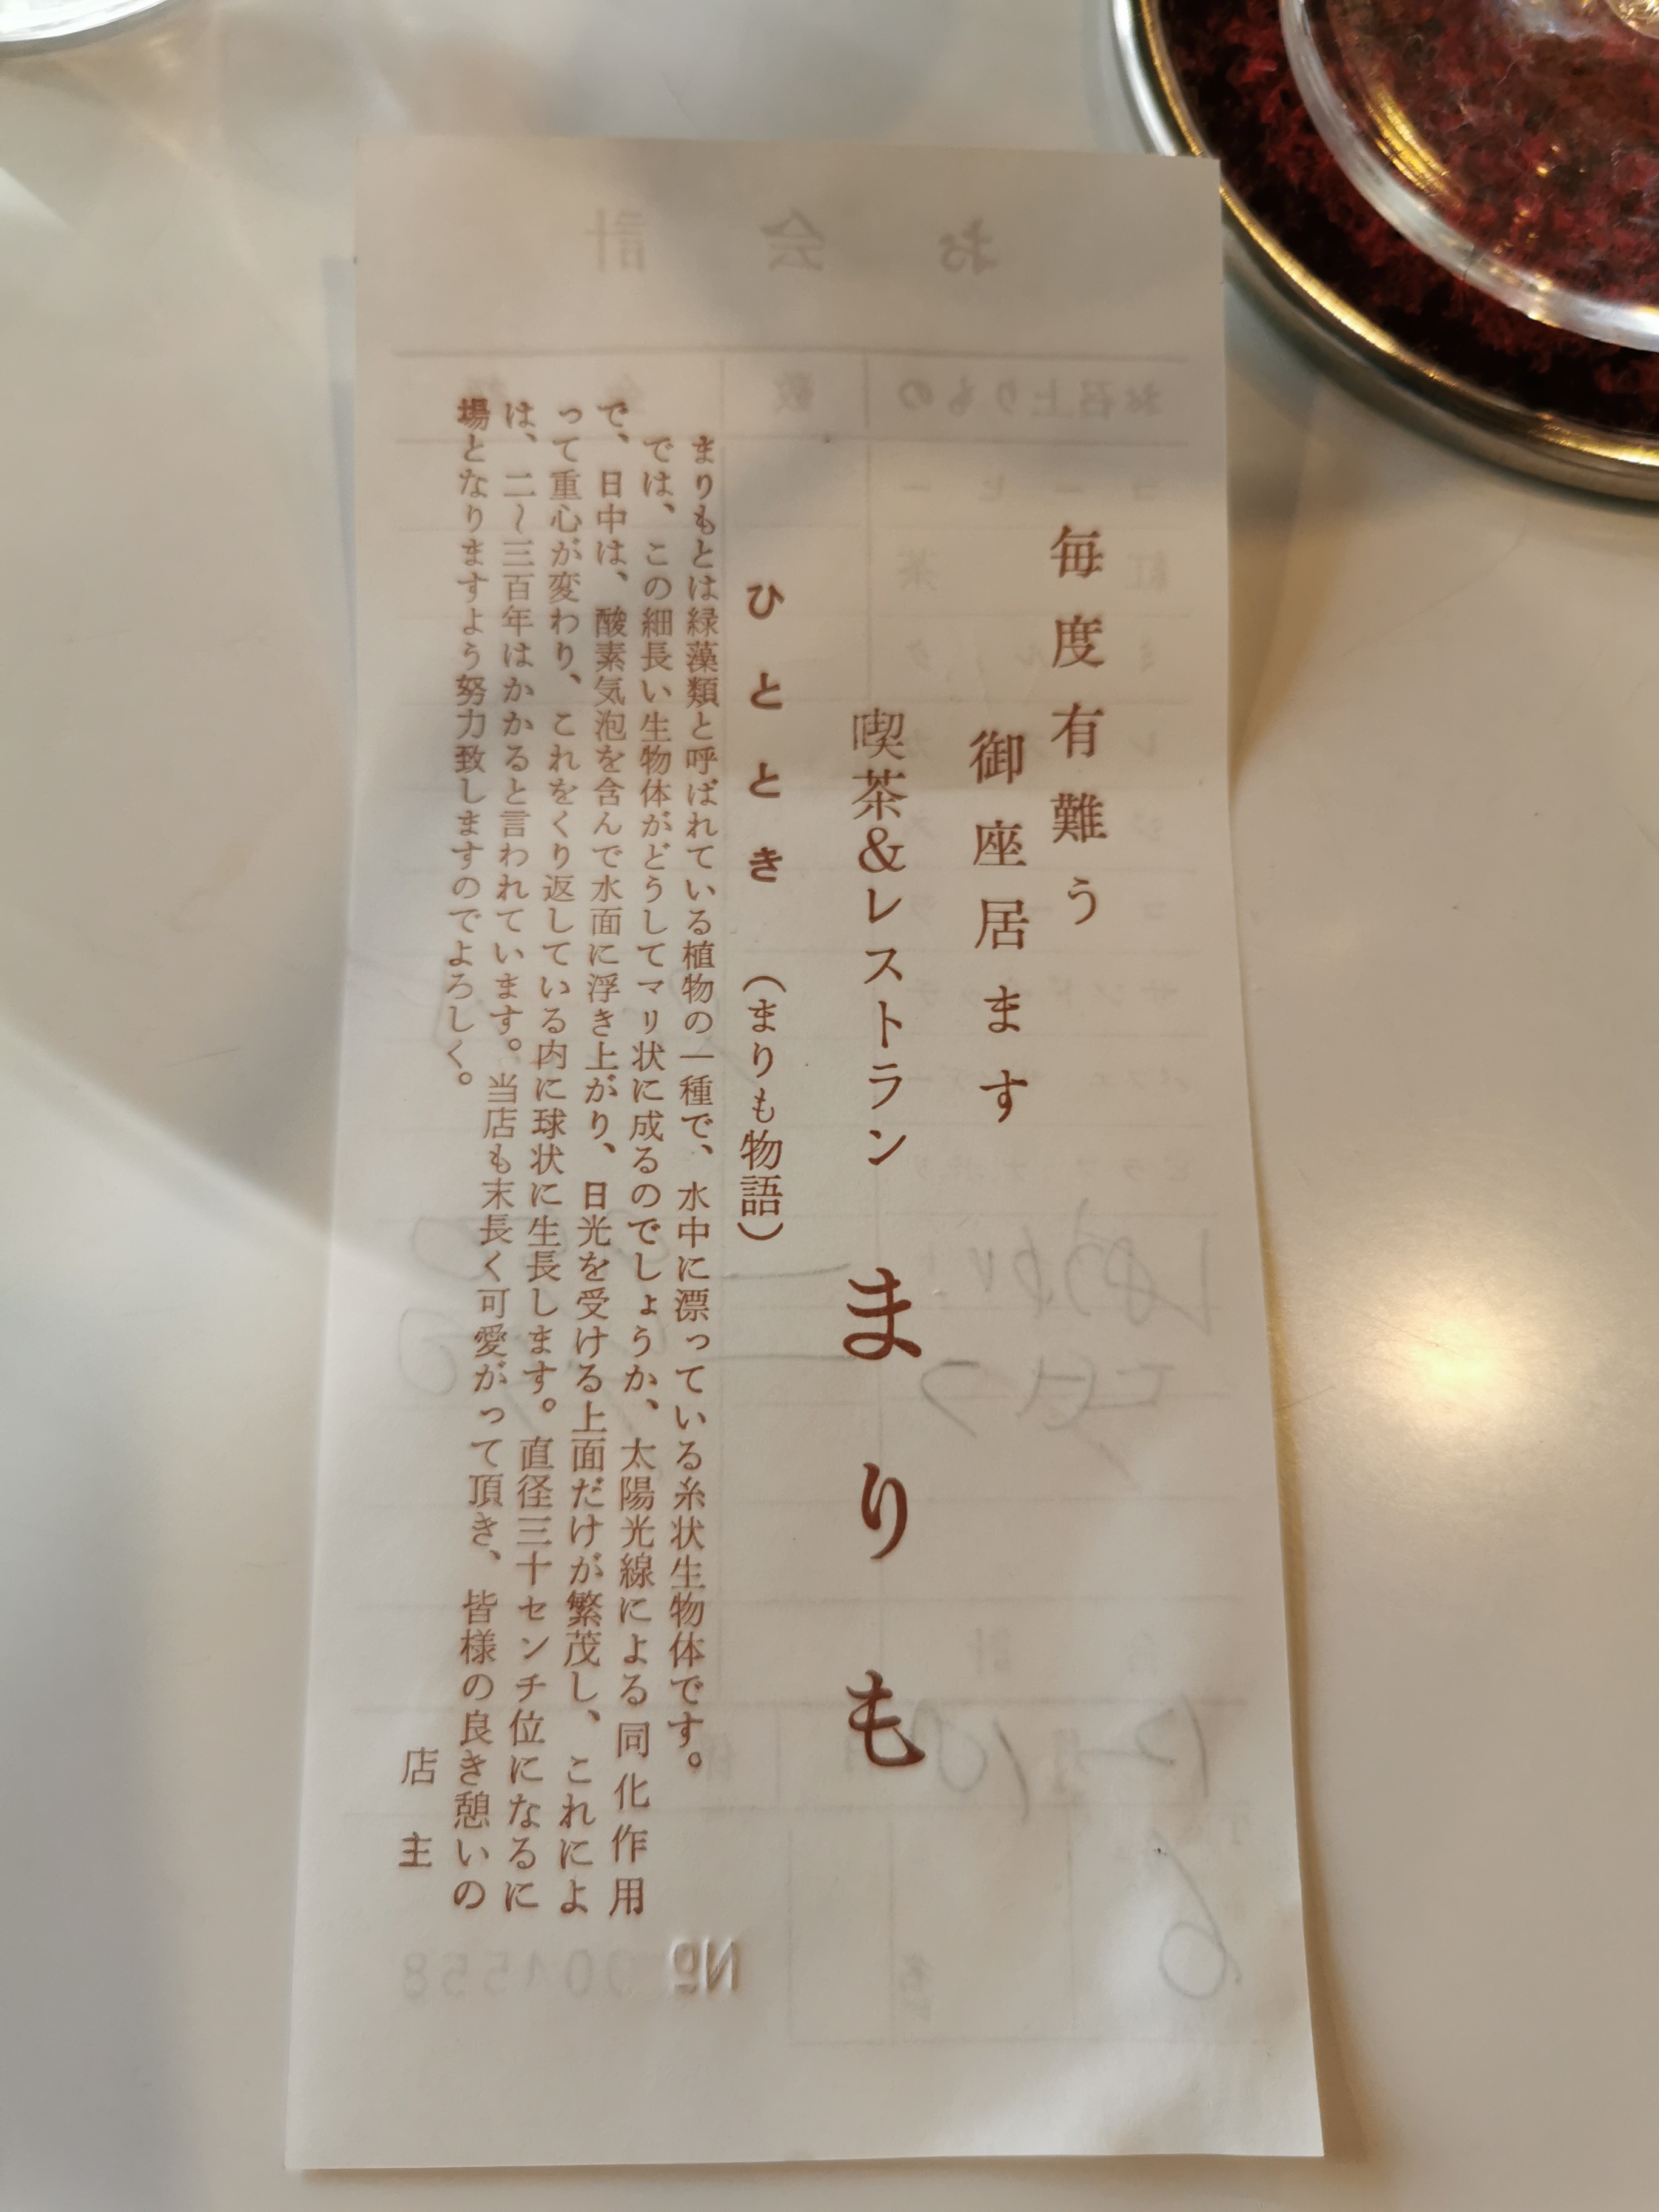 毎度有難う
御座居ます
喫茶&レストラン まりも
ひととき (まりも物語)
まりもとは緑藻類と呼ばれている植物の一種で、水中に漂っている糸状生物体です。
では、この細長い生物体がどうしてマリ状に成るのでしょうか、太陽光線による同化作用
で、日中は、酸素気泡を含んで水面に浮き上がり、日光を受ける上面だけが繁茂し、これによ
って重心が変わり、これをくり返している内に球状に生長します。直径三十センチ位になるに
は、二〜三百年はかかると言われています。当店も末長く可愛がって頂き、皆様の良き憩いの
場となりますよう努力致しますのでよろしく。
店主
お会計
お召上りもの 数 金額
コーヒー
紅茶
ミルク
サンドイッチ
№ 001558